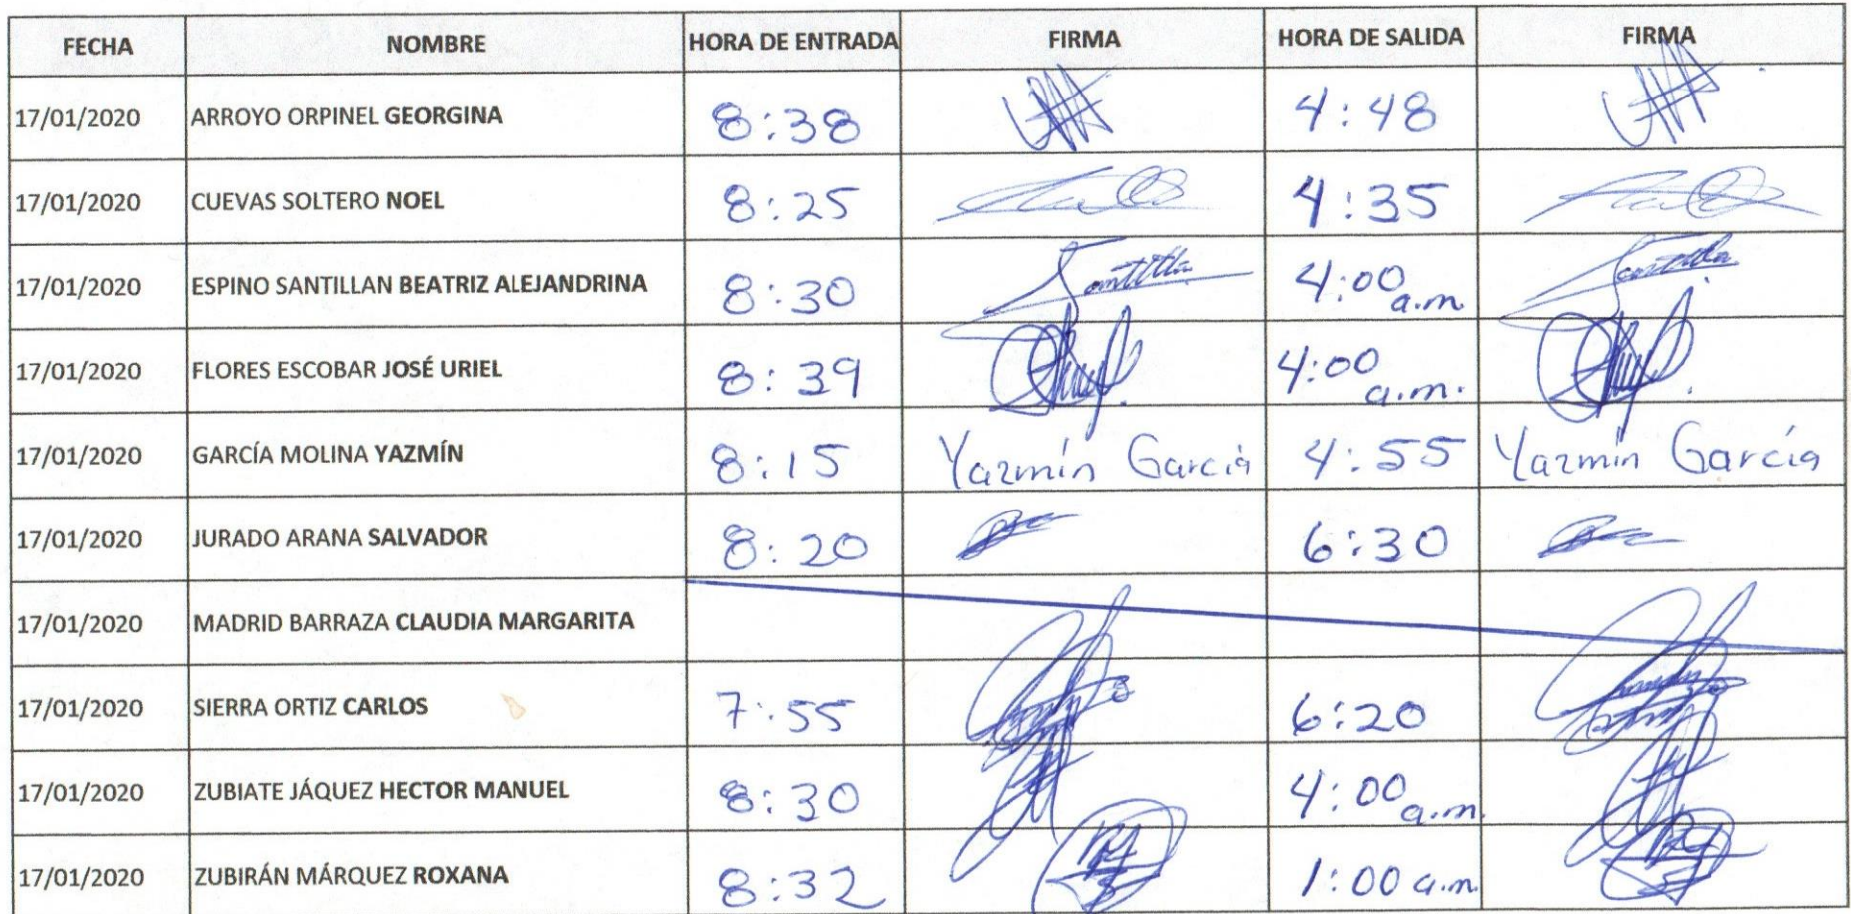 FECHA NOMBRE HORA DE ENTRADA FIRMA HORA DE SALIDA FIRMA
17/01/2020 ARROYO ORPINEL GEORGINA 8:38 4:48
17/01/2020 CUEVAS SOLTERO NOEL 8:25 4:35
17/01/2020 ESPINO SANTILLAN BEATRIZ ALEJANDRINA 8:30 4:00 a.m.
17/01/2020 FLORES ESCOBAR JOSÉ URIEL 8:39 4:00 a.m.
17/01/2020 GARCÍA MOLINA YAZMÍN 8:15 Yazmín García 4:55 Yazmín García
17/01/2020 JURADO ARANA SALVADOR 8:20 6:30
17/01/2020 MADRID BARRAZA CLAUDIA MARGARITA
17/01/2020 SIERRA ORTIZ CARLOS 7:55 6:20
17/01/2020 ZUBIATE JÁQUEZ HECTOR MANUEL 8:30 4:00 a.m.
17/01/2020 ZUBIRÁN MÁRQUEZ ROXANA 8:32 1:00 a.m.